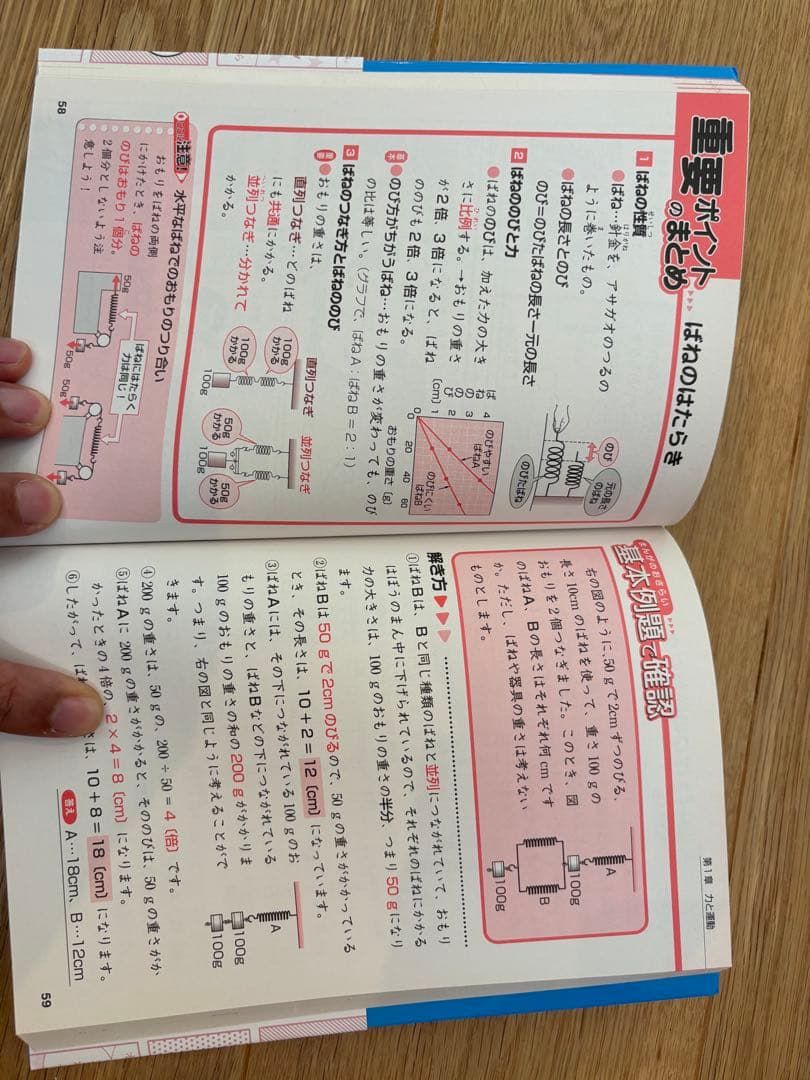 重要ポイントのまとめ
ばねのはたらき
1 ばねの性質
せいしつ
●ばね…針金を、アサガオのつるの
はりがね
ように巻いたもの。
●ばねの長さとのび
のび＝のびたばねの長さ－元の長さ
のび
元の長さのばね
のびたばね
2 ばねののびと力
●ばねののびは、加えた力の大き
さに比例する。→おもりの重さ
ひれい
が2倍、3倍になると、ばね
ののびも2倍、3倍になる。
ばねののび
〔cm〕
4
3
2
1
0
0 20 40 60
おもりの重さ〔g〕
のびやすいばねA
のびにくいばねB
基本
●のび方がちがうばね…おもりの重さが変わっても、のび
の比は等しい。（グラフで、ばねA：ばねB＝2：1）
3 ばねのつなぎ方とばねののび
重要
●おもりの重さは、
直列つなぎ…どのばね
にも共通にかかる。
並列つなぎ…分かれて
へいれつ
かかる。
直列つなぎ
100gかかる
100gかかる
100g
並列つなぎ
50gかかる
50gかかる
100g
注意！
水平なばねでのおもりのつり合い
おもりをばねの両側
にかけたとき、ばねの
のびはおもり1個分。
2個分としないよう注
意しよう！
ばねにはたらく力は同じ！
50g
50g
50g
58
第1章 力と運動
まんがのおさらい
基本例題で確認
右の図のように、50gで2cmずつのびる、
長さ10cmのばねを使って、重さ100gの
おもりを2個つなぎました。このとき、図
のばねA、Bの長さはそれぞれ何cmです
か。ただし、ばねや器具の重さは考えない
ものとします。
A
100g
B
100g
解き方
①ばねBは、Bと同じ種類のばねと並列につながれていて、おもり
はぼうのまん中に下げられているので、それぞれのばねにかかる
力の大きさは、100gのおもりの重さの半分、つまり50gになり
ます。
②ばねBは50gで2cmのびるので、50gの重さがかかっている
とき、その長さは、10＋2＝12〔cm〕になっています。
③ばねAには、その下につながれている100gのお
もりの重さと、ばねBなどの下につながれている
100gのおもりの重さの和の200gがかかりま
す。つまり、右の図と同じように考えることがで
きます。
A
100g
100g
④200gの重さは、50gの、200÷50＝4〔倍〕です。
⑤ばねAに200gの重さがかかると、そののびは、50gの重さがか
かったときの4倍の、2×4＝8〔cm〕になります。
⑥したがって、ばね さは、10＋8＝18〔cm〕になります。
答え A…18cm、B…12cm
59